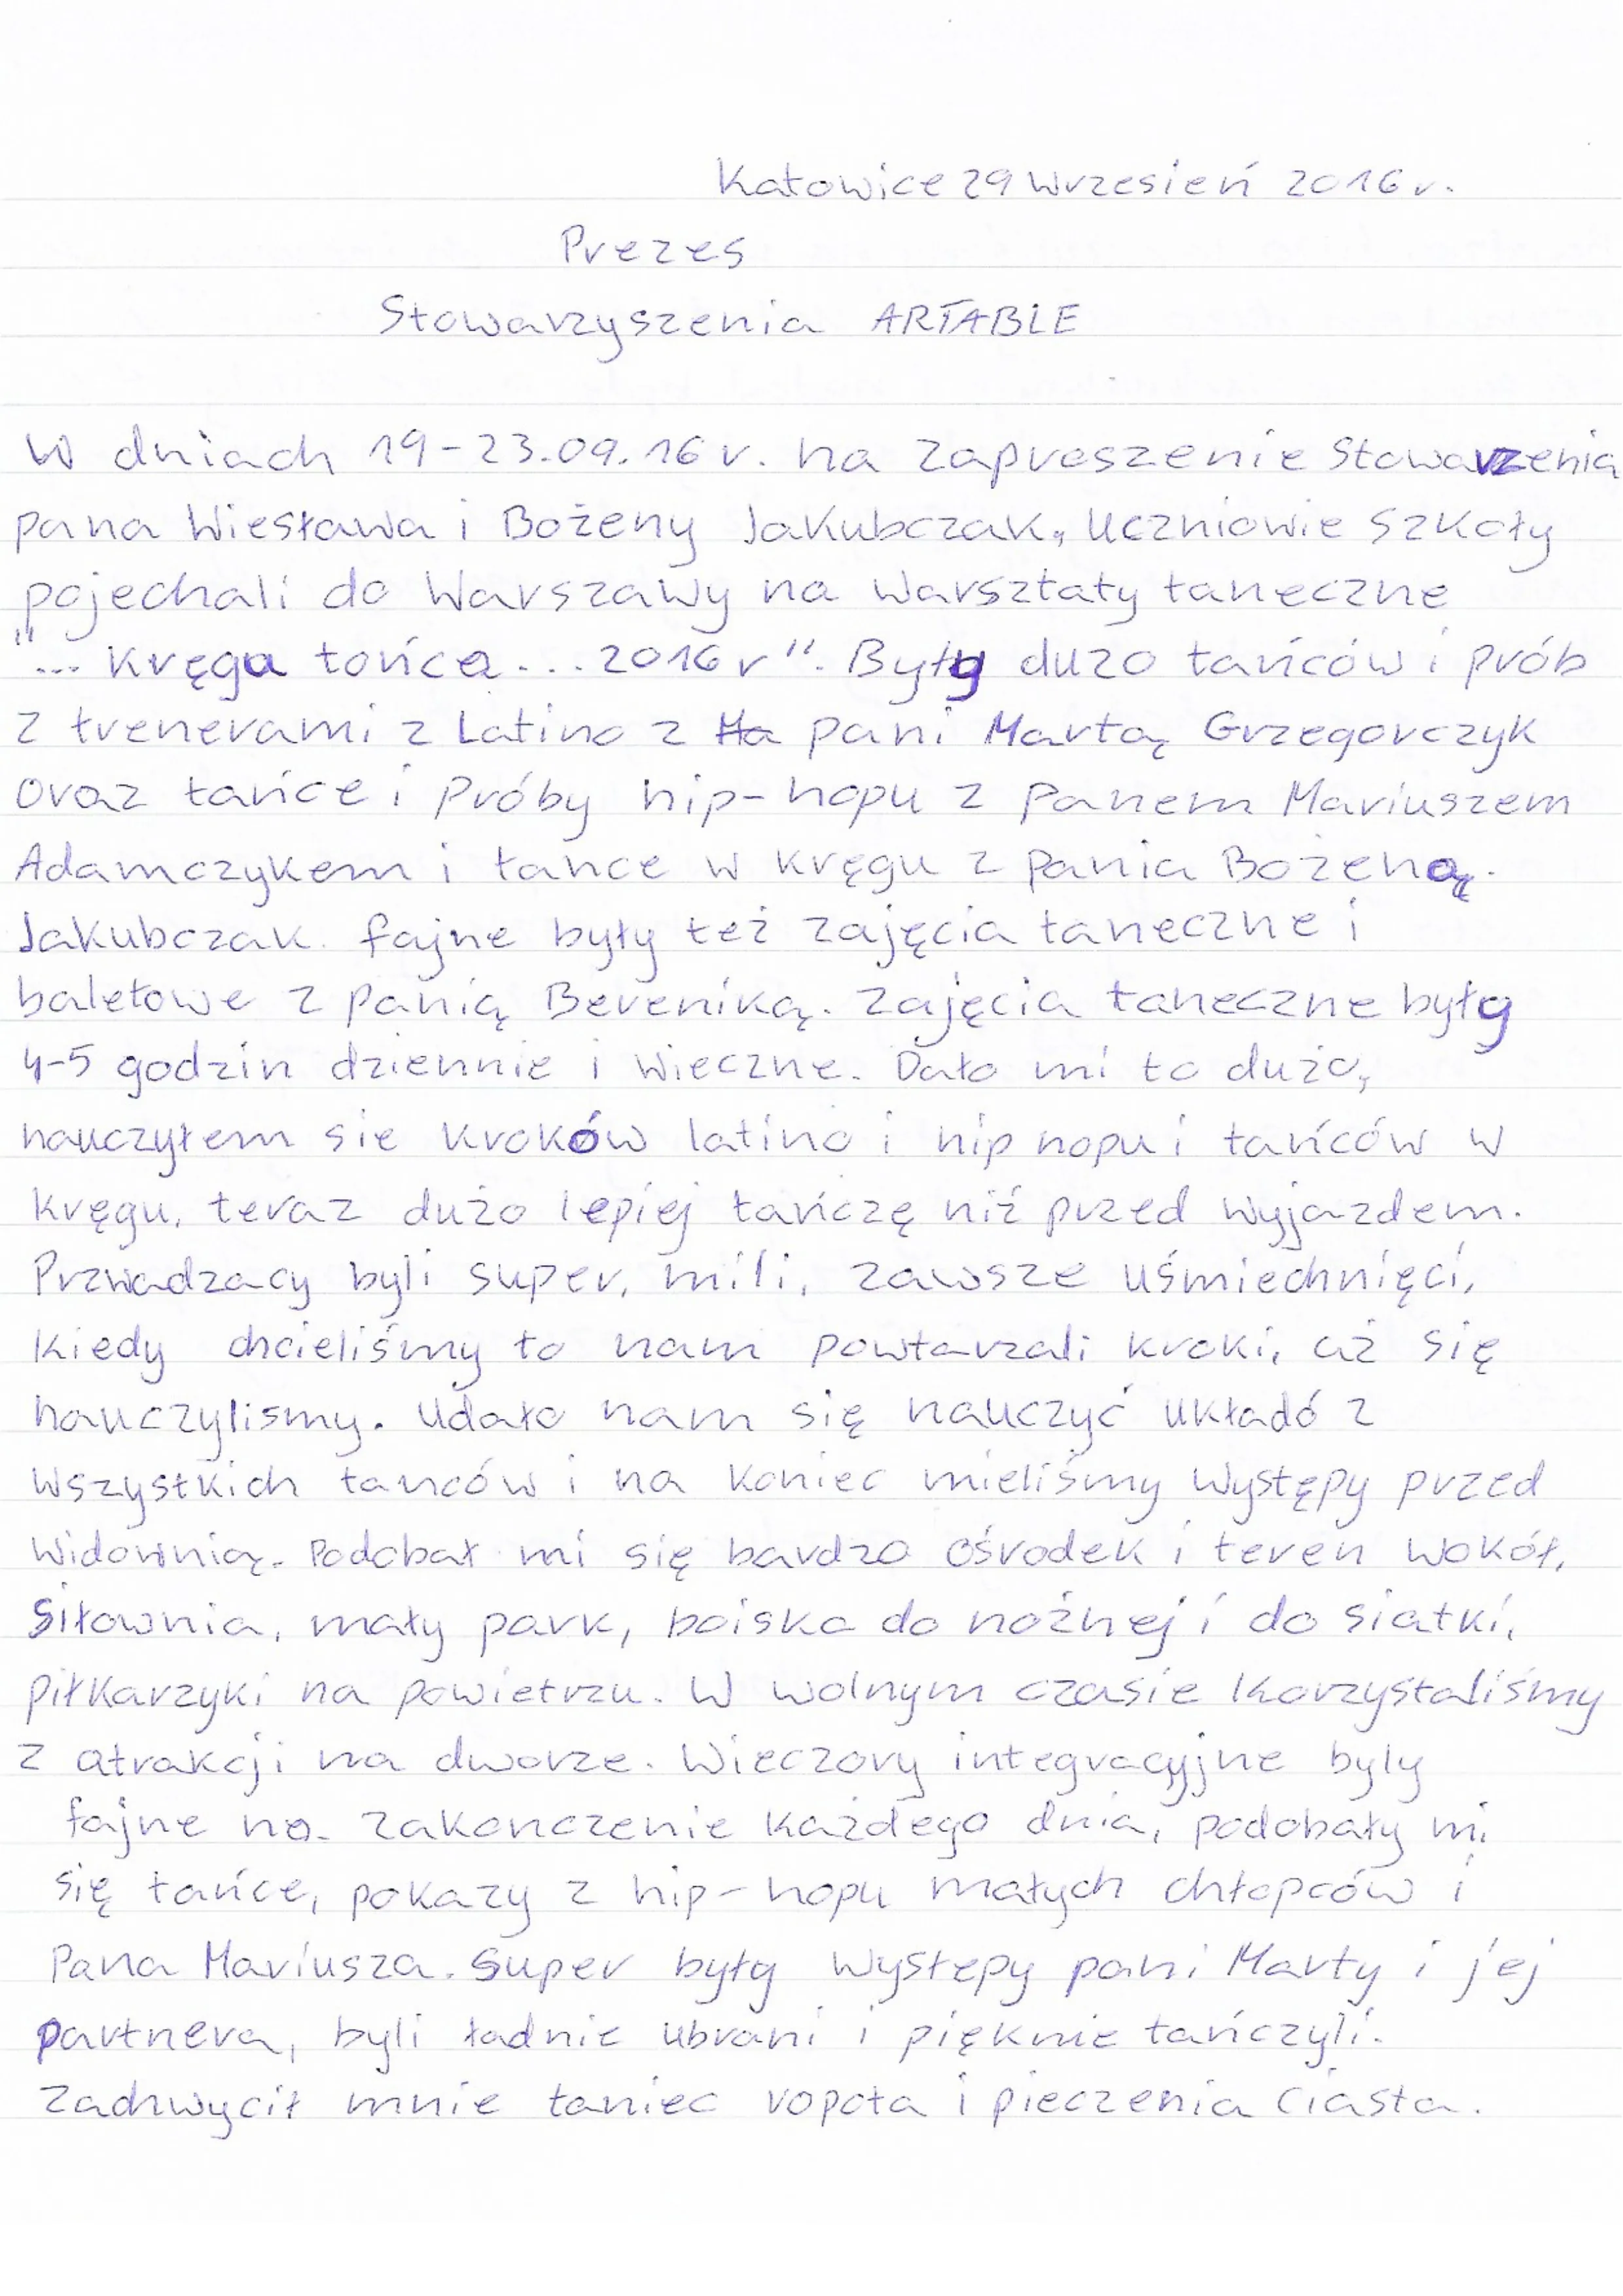 Katowice 29 Wrzesień 2016 r.
Prezes
Stowarzyszenia ARTABLE
W dniach 19-23.09.16 r. na zaproszenie Stowarzenia
pana Wiesława i Bożeny Jakubczak, Uczniowie Szkoły
pojechali do Warszawy na warsztaty taneczne
"... Kręgu tońca ... 2016 r". Były duzo tańców i prób
z trenerami z Latino z Ma pani Martą Grzegorczyk
oraz tańce i Próby hip-hopu z Panem Mariuszem
Adamczykem i tance w kręgu z pania Bożeną.
Jakubczak. fajne były też zajęcia taneczne i
baletowe z Panią Bereniką. Zajęcia taneczne były
4-5 godzin dziennie i wieczne. Dało mi to dużo,
nauczyłem sie kroków latino i hip hopu i tańców w
kręgu, teraz dużo lepiej tańczę niż przed wyjazdem.
Przwadzacy byli super, mili, zawsze uśmiechnięci,
Kiedy chcieliśmy to nam powtarzali kroki, aż się
nauczylismy. Udało nam się nauczyć układó z
wszystkich tanców i na koniec mieliśmy występy przed
widownią. Podobał mi się bardzo ośrodek i teren wokół,
Siłownia, mały park, boisko do nożnej i do siatki,
piłkarzyki na powietrzu. W wolnym czasie korzystaliśmy
z atrakcji na dworze. Wieczory integracyjne byly
fajne na zakonczenie każdego dnia, podobały mi
się tańce, pokazy z hip-hopu małych chłopców i
Pana Mariusza. Super były występy pani Marty i jej
partnera, byli ładnie ubrani i pięknie tańczyli.
Zachwycił mnie taniec robota i pieczenia ciasta.